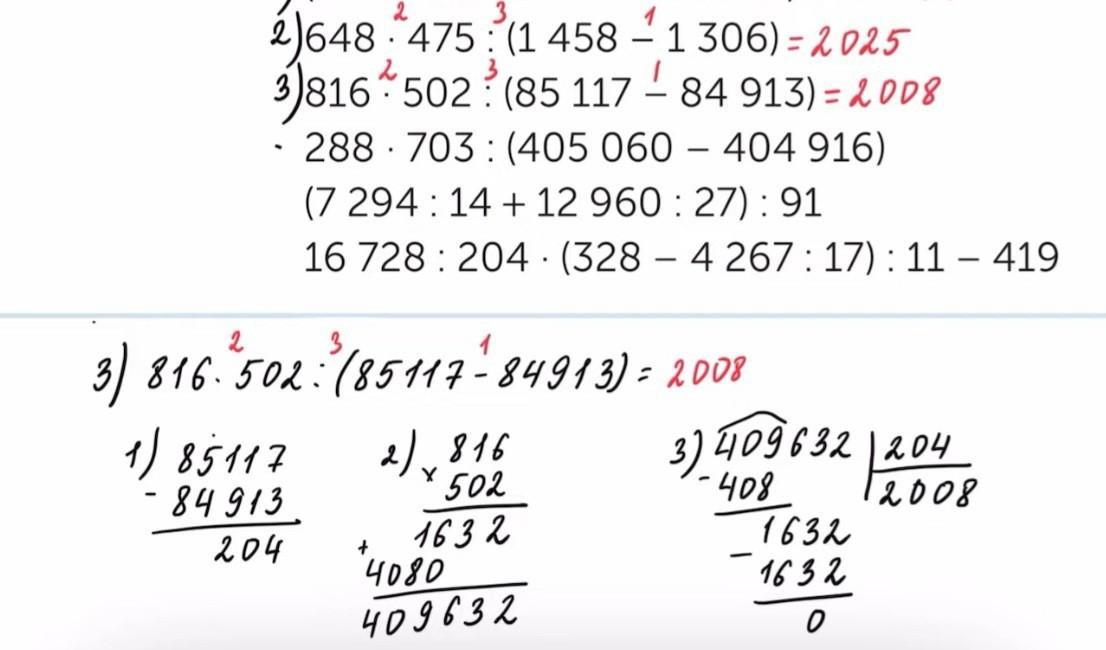 2) 648 · 475 : (1 458 – 1 306) = 2025
2 3 1
3) 816 · 502 : (85 117 – 84 913) = 2008
2 3 1
· 288 · 703 : (405 060 – 404 916)
(7 294 : 14 + 12 960 : 27) : 91
16 728 : 204 · (328 – 4 267 : 17) : 11 – 419
2 3 1
3) 816 · 502 : (85117 - 84913) = 2008
1) 85117
- 84913
204
2) 816
× 502
1632
+ 4080
409632
3) 409632 | 204
- 408 2008
1632
- 1632
0